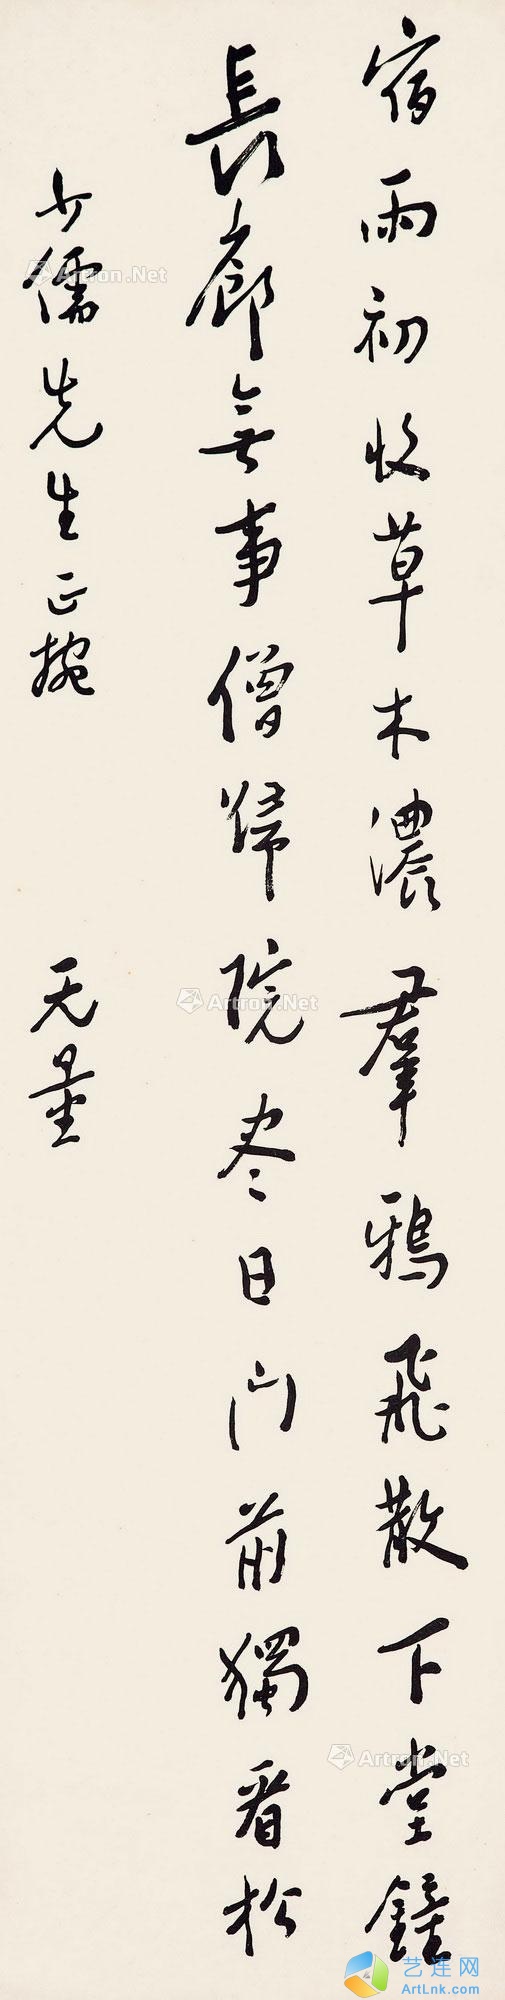 宿雨初收草木濃羣鴉飛散下堂鐘
長廊無事僧歸院盡日門前獨看松
少儒先生正捥
无量
Artron.Net
Artron.Net
Artron.Net
艺连网
ArtLnk.com